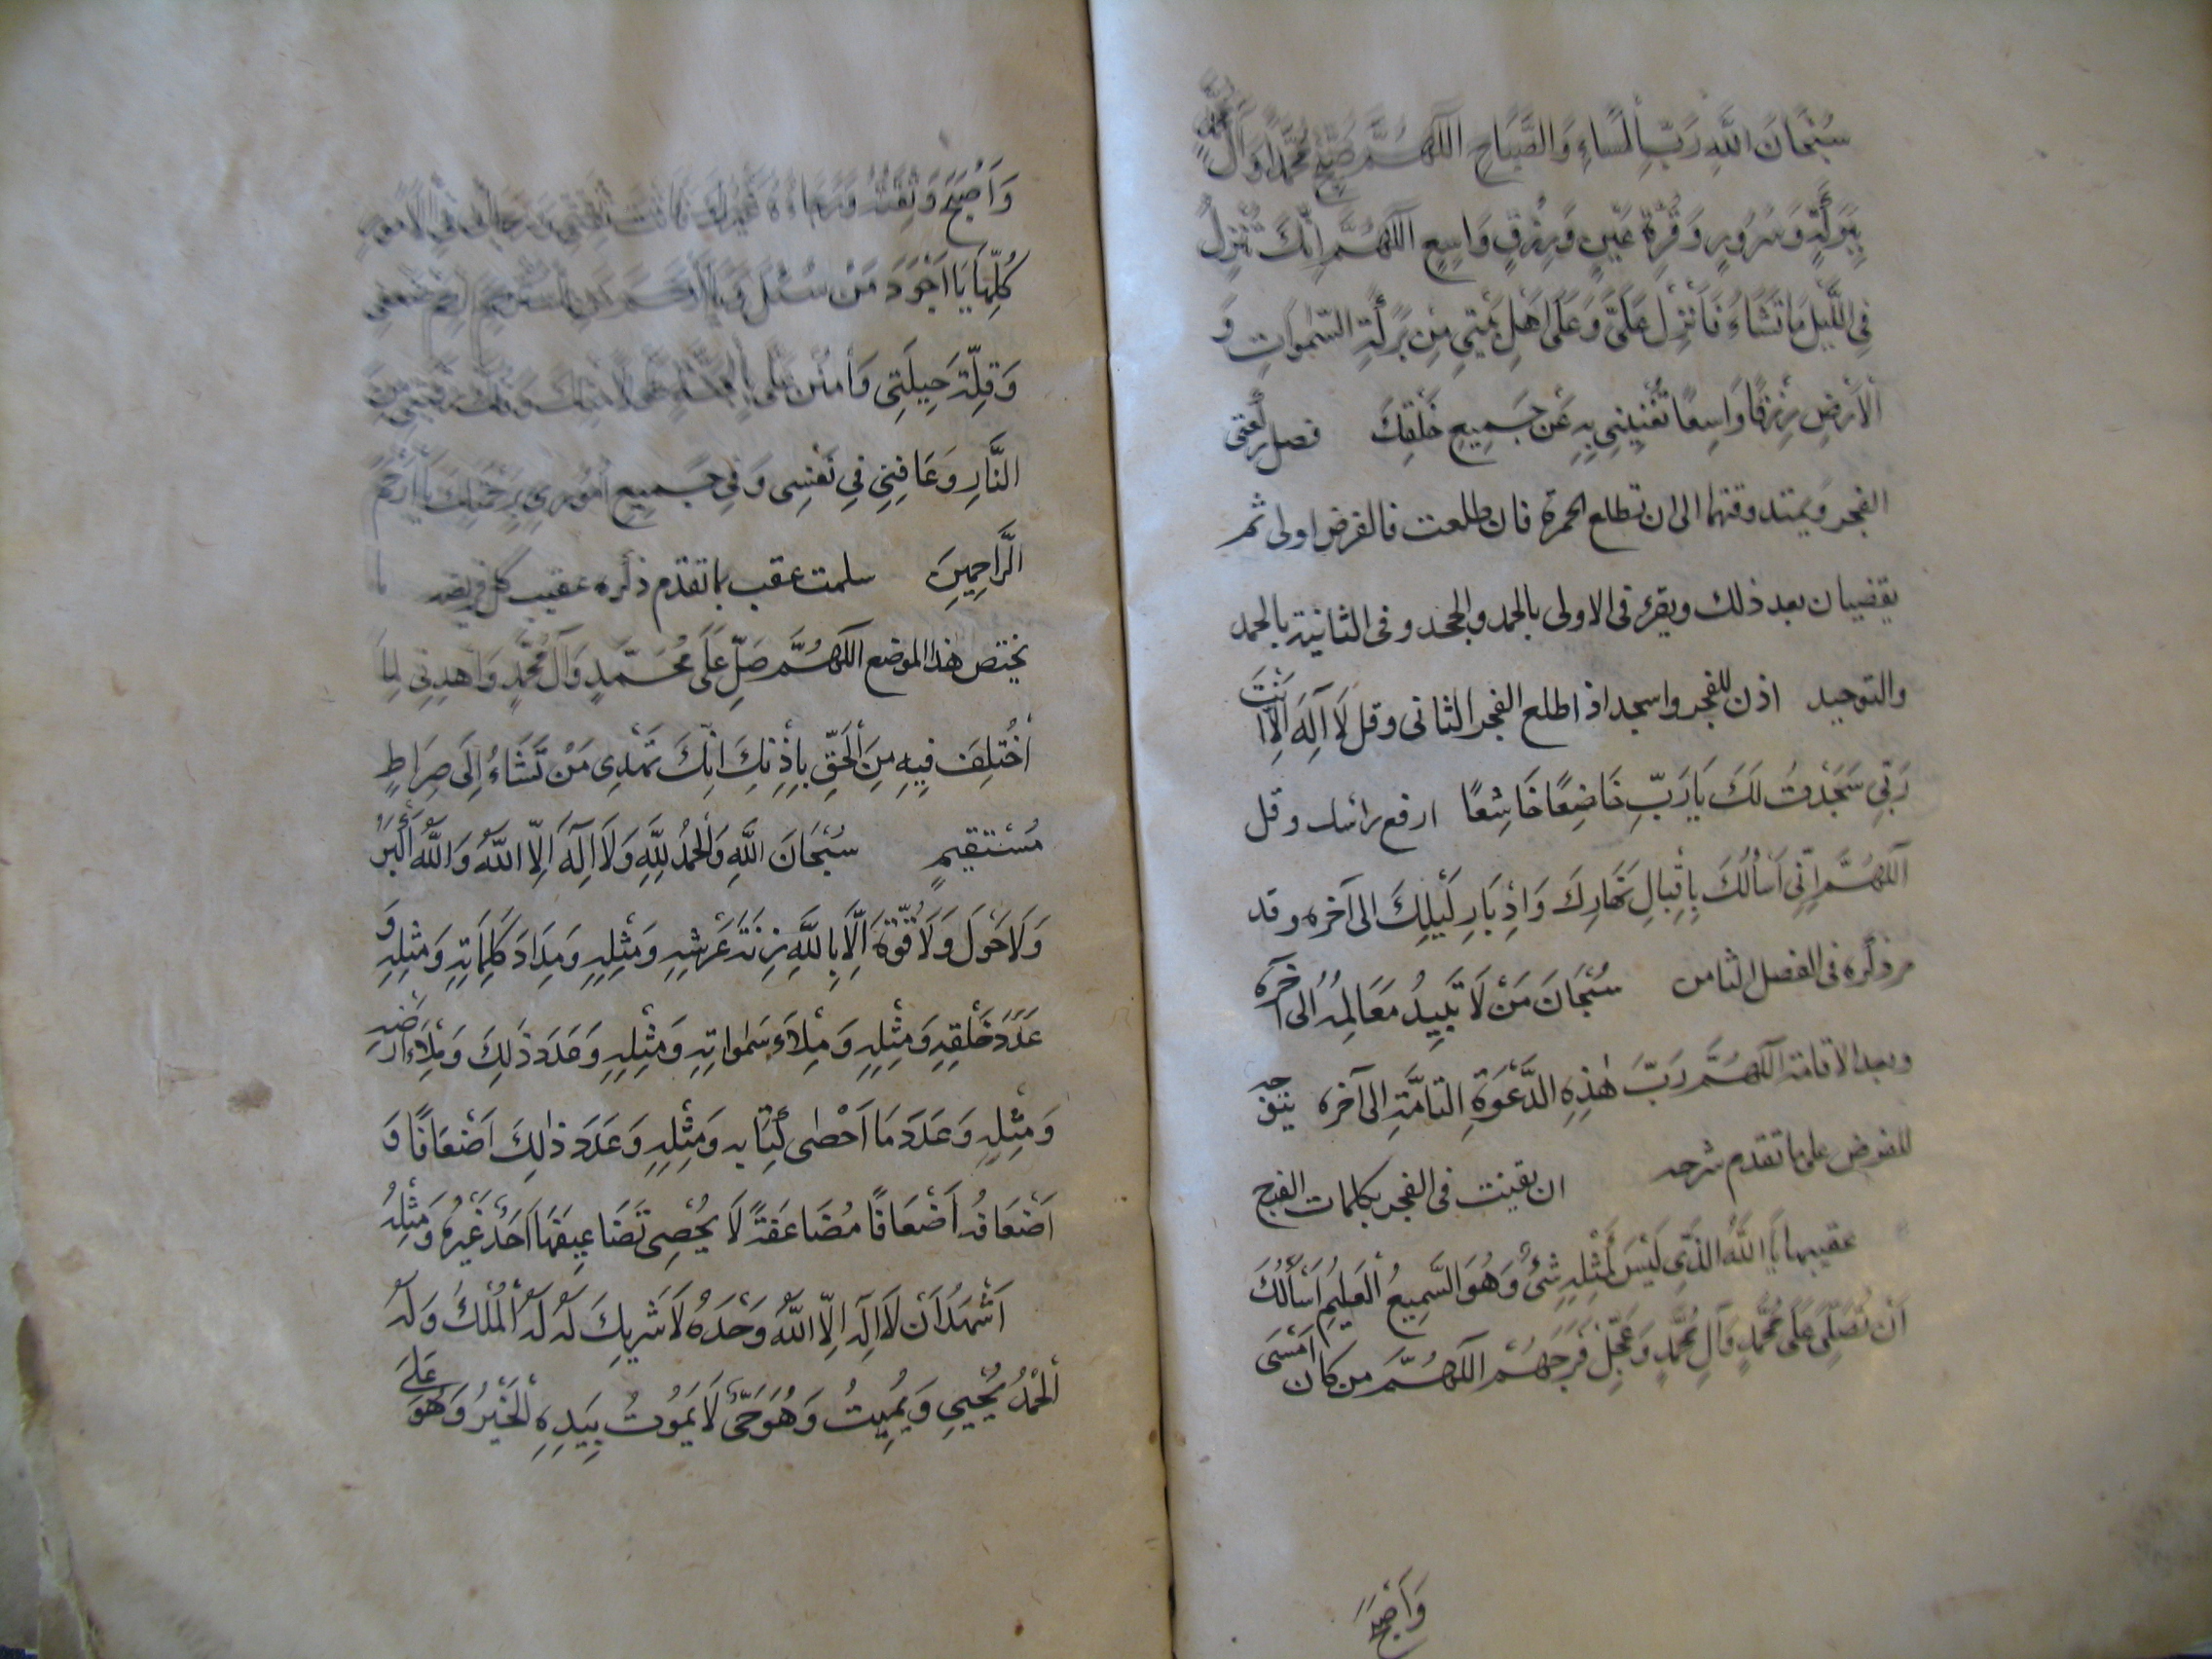 سُبْحَانَ اللَّهِ رَبِّ الْمَسَاءِ وَالصَّبَاحِ اللَّهُمَّ صَبِّحْ مُحَمَّدًا وَآلَ
بِبَرَكَةٍ وَسُرُورٍ وَقُرَّةِ عَيْنٍ وَرِزْقٍ وَاسِعٍ اللَّهُمَّ إِنَّكَ تُنْزِلُ
فِي اللَّيْلِ مَا تَشَاءُ فَأَنْزِلْ عَلَيَّ وَعَلَى أَهْلِ بَيْتِي مِنْ بَرَكَةِ السَّمٰوَاتِ وَ
الْأَرْضِ رِزْقًا وَاسِعًا تُغْنِينِي بِهِ عَنْ جَمِيعِ خَلْقِكَ فصل ركعتى
الفجر ويمتد وقتهما الى ان تطلع الحمرة فان طلعت فالفرض اولى ثم
يقضيان بعد ذلك ويقرء فى الاولى بالحمد والجحد وفى الثانية بالحمد
والتوحيد اذن للفجر واسجد اذ اطلع الفجر الثانى وقل لَا اِلٰهَ اِلَّا اَنْتَ
رَبِّي سَجَدْتُ لَكَ يَا رَبِّ خَاضِعًا خَاشِعًا ارفع رأسك وقل
اَللَّهُمَّ اِنِّي اَسْأَلُكَ بِاِقْبَالِ نَهَارِكَ وَاِدْبَارِ لَيْلِكَ الى آخره وقد
مر ذكره فى الفصل الثامن سُبْحَانَ مَنْ لَا تَبِيدُ مَعَالِمُهُ الى آخره
وبعد الاقامة اَللَّهُمَّ رَبَّ هٰذِهِ الدَّعْوَةِ التَّامَّةِ الى آخره يتوجه
للفرض على ما تقدم شرحه ان يقنت فى الفجر بكلمات الفرج
عقيبها يَا اَللَّهُ الَّذِي لَيْسَ كَمِثْلِهِ شَيْءٌ وَهُوَ السَّمِيعُ الْعَلِيمُ اَسْأَلُكَ
اَنْ تُصَلِّيَ عَلَى مُحَمَّدٍ وَآلِ مُحَمَّدٍ وَعَجِّلْ فَرَجَهُمْ اَللَّهُمَّ مَنْ كَانَ اَمْسَى
وَاَصْبَحَ
وَاَصْبَحَ وَثِقَتُهُ وَرَجَاؤُهُ غَيْرُكَ فَاَنْتَ ثِقَتِي وَرَجَائِي فِي الْاُمُورِ
كُلِّهَا يَا اَجْوَدَ مَنْ سُئِلَ وَيَا اَرْحَمَ مَنِ اسْتُرْحِمَ اِرْحَمْ ضَعْفِي
وَقِلَّةَ حِيلَتِي وَامْنُنْ عَلَيَّ بِالْجَنَّةِ
النَّارِ وَعَافِنِي فِي نَفْسِي وَفِي جَمِيعِ اُمُورِي بِرَحْمَتِكَ يَا اَرْحَمَ
الرَّاحِمِينَ سلمت عقب بما تقدم ذكره عقيب كل فريضة
يختص هذا الموضع اَللَّهُمَّ صَلِّ عَلَى مُحَمَّدٍ وَآلِ مُحَمَّدٍ وَاهْدِنِي لِمَا
اخْتُلِفَ فِيهِ مِنَ الْحَقِّ بِاِذْنِكَ اِنَّكَ تَهْدِي مَنْ تَشَاءُ اِلَى صِرَاطٍ
مُسْتَقِيمٍ سُبْحَانَ اللَّهِ وَالْحَمْدُ لِلَّهِ وَلَا اِلٰهَ اِلَّا اللَّهُ وَاللَّهُ اَكْبَرُ
وَلَا حَوْلَ وَلَا قُوَّةَ اِلَّا بِاللَّهِ زِنَةَ عَرْشِهِ وَمِثْلِهِ وَمِدَادَ كَلِمَاتِهِ وَمِثْلِهِ وَ
عَدَدَ خَلْقِهِ وَمِثْلِهِ وَمِلَاءَ سَمٰوَاتِهِ وَمِثْلِهِ وَعَدَدَ ذٰلِكَ وَمِلَاءَ اَرْضِهِ
وَمِثْلِهِ وَعَدَدَ مَا اَحْصٰى كِتَابُهُ وَمِثْلِهِ وَعَدَدَ ذٰلِكَ اَضْعَافًا وَ
اَضْعَافَهُ اَضْعَافًا مُضَاعَفَةً لَا يُحْصِي تَضَاعِيفَهَا اَحَدٌ غَيْرُهُ وَمِثْلِهِ
اَشْهَدُ اَنْ لَا اِلٰهَ اِلَّا اللَّهُ وَحْدَهُ لَا شَرِيكَ لَهُ لَهُ الْمُلْكُ وَلَهُ
الْحَمْدُ يُحْيِي وَيُمِيتُ وَهُوَ حَيٌّ لَا يَمُوتُ بِيَدِهِ الْخَيْرُ وَهُوَ عَلَى